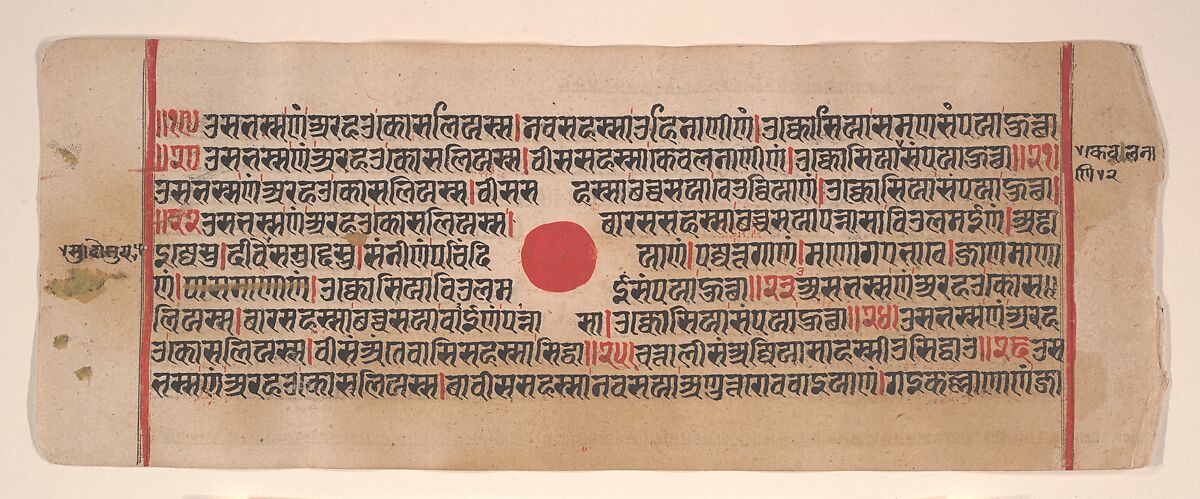 ॥१९ उसभस्सणं अरहओ कोसलियस्स।नवसहस्सा उहिनाणीणं।उक्कोसिया समणसंपया हुत्था
॥२० उसभस्सणं अरहओ कोसलियस्स।वीससहस्सा केवलनाणीणं।उक्कोसिया संपया हुत्था॥२१
उसभस्सणं अरहओ कोसलियस्स।वीसस हस्सा छच्चसया वेउव्वियाणं।उक्कोसिया संपया हुत्था।
॥२२ उसभस्सणं अरहओ कोसलियस्स। बारससहस्सा छच्चसया पन्नासा विउलमईणं।अड्ढा
इज्जेसु।दीवेसमुद्देसु।संनीणंपंचिंदि याणं।पज्जत्तगाणं।मणोगएभावे।जाणमाणा
णं।पासमाणाणं।उक्कोसिया विउलम ईसंपया हुत्था॥२३ उसभस्सणं अरहओ कोस॥
लियस्स।बारसहस्सा छच्चसया वाईणं पन्ना सा।उक्कोसिया संपया हुत्था॥२४ उसभस्सणं अरह
ओ कोसलियस्स।वीसं अंतेवासिसहस्सा सिद्धा॥२५ चत्तालीसं अज्जियासाहस्सीउ सिद्धाउ॥२६ उस
भस्सणं अरहओ कोसलियस्स।बावीससहस्सा नवसया अणुत्तरोववाइयाणं।गइकल्लाणाणं जा